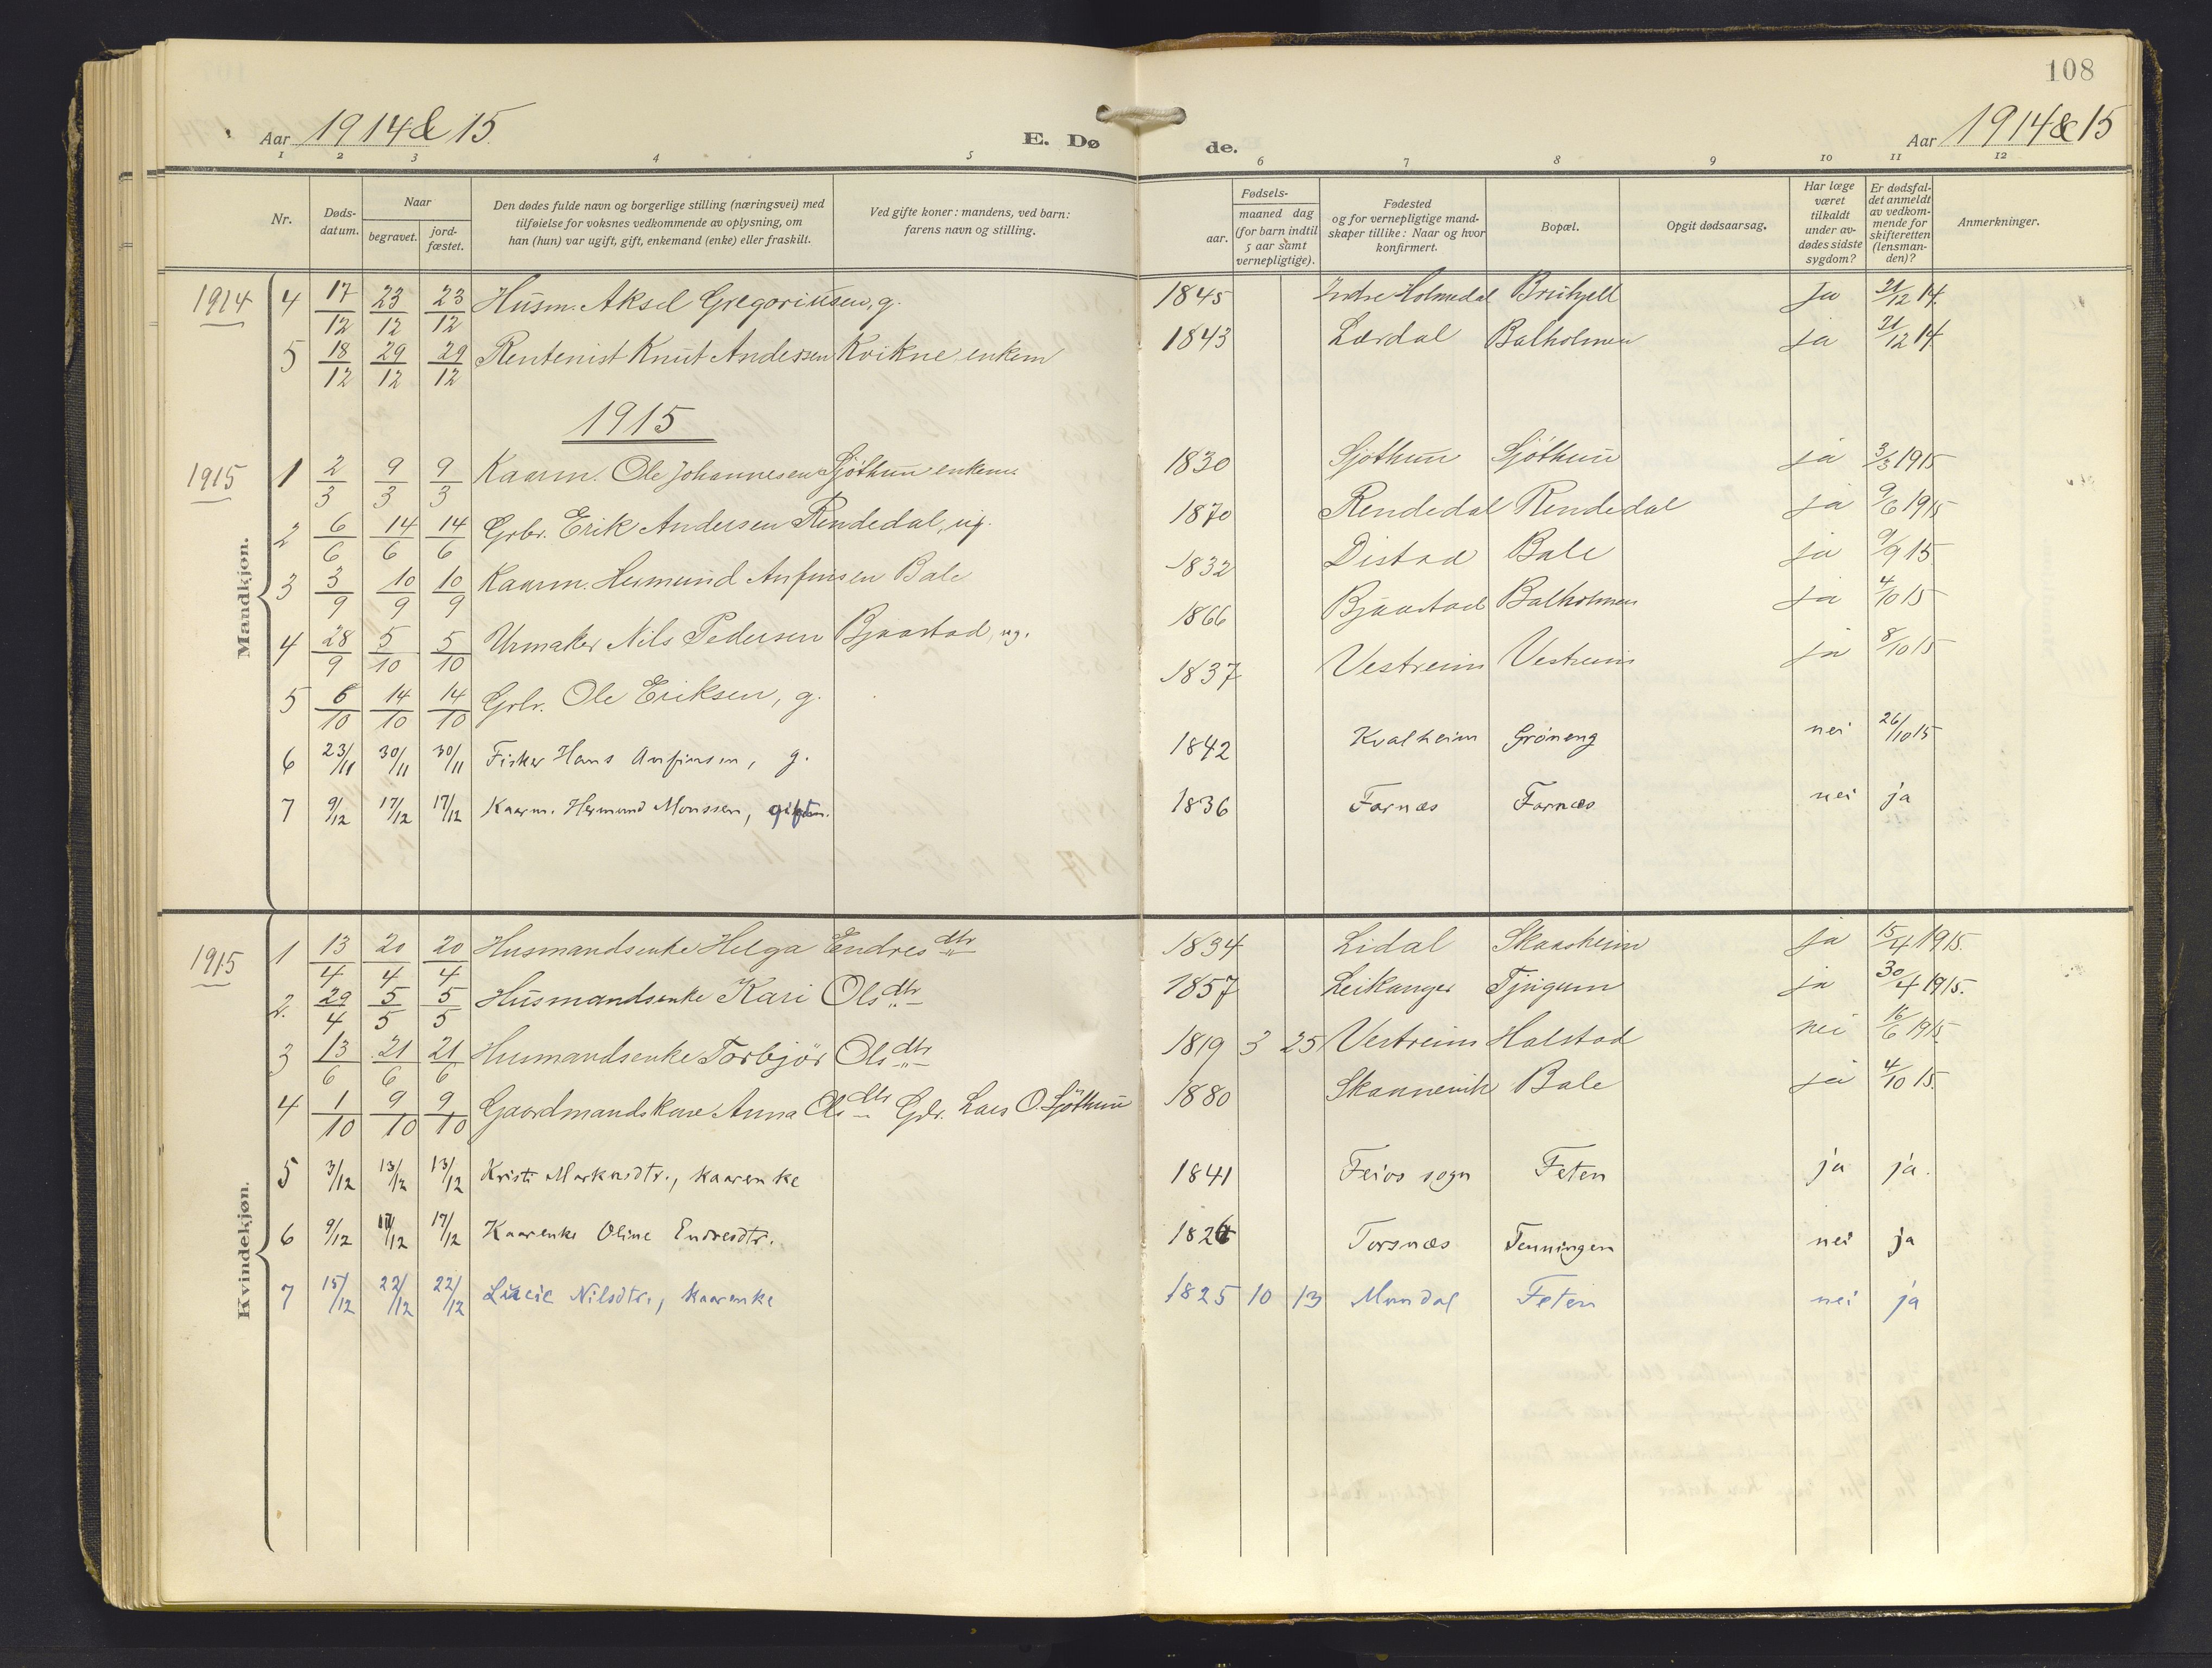 108
Aar 1914 & 15.
E. Dø
de.
Aar 1914 & 15
1 2 3 4 5 6 7 8 9 10 11 12
Nr.
Døds-
datum.
Naar
begravet.
jord-
fæstet.
Den dødes fulde navn og borgerlige stilling (næringsvei) med
tilføielse for voksnes vedkommende av oplysning, om
han (hun) var ugift, gift, enkemand (enke) eller fraskilt.
Ved gifte koner: mandens, ved barn:
farens navn og stilling.
Fødsels-
aar.
maaned dag
(for barn indtil
5 aar samt
vernepligtige).
Fødested
og for vernepligtige mand-
skaper tillike: Naar og hvor
konfirmert.
Bopæl.
Opgit dødsaarsag.
Har læge
været
tilkaldt
under av-
dødes sidste
sygdom?
Er dødsfal-
det anmeldt
av vedkom-
mende for
skifteretten
(lensman-
den)?
Anmerkninger.
Mandkjøn.
1914 4 17/12 23/12 23/12 Husm. Aksel Gregoriusen, g. 1845 Indre Holmedal ja 21/12 14.
5 18/12 29/12 29/12 Rentenist Knut Andersen Kvikne, enkem 1843 Lærdal Balholmen ja 21/12 14
1915
1915 1 2/3 9/3 9/3 Kaarm. Ole Johannesen Sjøthun enkem. 1830 Sjøthun Sjøthun ja 3/3 1915
2 6/6 14/6 14/6 Grbr. Erik Andersen Rendedal, ug. 1870 Rendedal Rendedal ja 9/6 1915
3 3/9 10/9 10/9 Kaarm. Hermund Anfinsen Bale 1832 Distad Bale ja 9/9 15
4 28/9 5/10 5/10 Urmaker Nils Pedersen Bjaastad, ug. 1866 Bjaastad Balholmen ja 4/10 15
5 6/10 14/10 14/10 Grbr. Ole Eriksen, g. 1837 Vestreim Vestreim ja 8/10 15
6 23/11 30/11 30/11 Fisker Hans Anfinsen, g. 1842 Kvalheim Grøneng nei 26/10 15
7 9/12 17/12 17/12 Kaarm. Hermund Monssen, 1836 Farnæs Farnæs nei ja
Kvindekjøn.
1915 1 13/4 20/4 20/4 Husmandsenke Helga Endresdtr 1834 Lidal Skaasheim ja 15/4 1915.
2. 29/4 5/5 5/5 Husmandsenke Kari Olsdtr 1857 Leikanger Tjugum ja 30/4 1915.
3 13/6 21/6 21/6 Husmandsenke Torbjør Olsdtr 1819 3 25 Vestreim Halstad nei 16/6 1915
4 1/10 9/10 9/10 Gaardmandskone Anna Olsdtr Gbr. Lars O Sjøthun 1880 Skaanevik Bale ja 4/10 15.
5 3/12 13/12 13/12 Kristi Markusdtr., kaarenke 1841 Feios sogn Feten ja ja.
6 9/12 17/12 17/12 Kaarenke Oline Endresdtr. Torsnæs Tenningen nei ja
7 15/12 22/12 22/12 Nilsdtr., kaarenke 1825 10 13 Mundal Feten nei ja